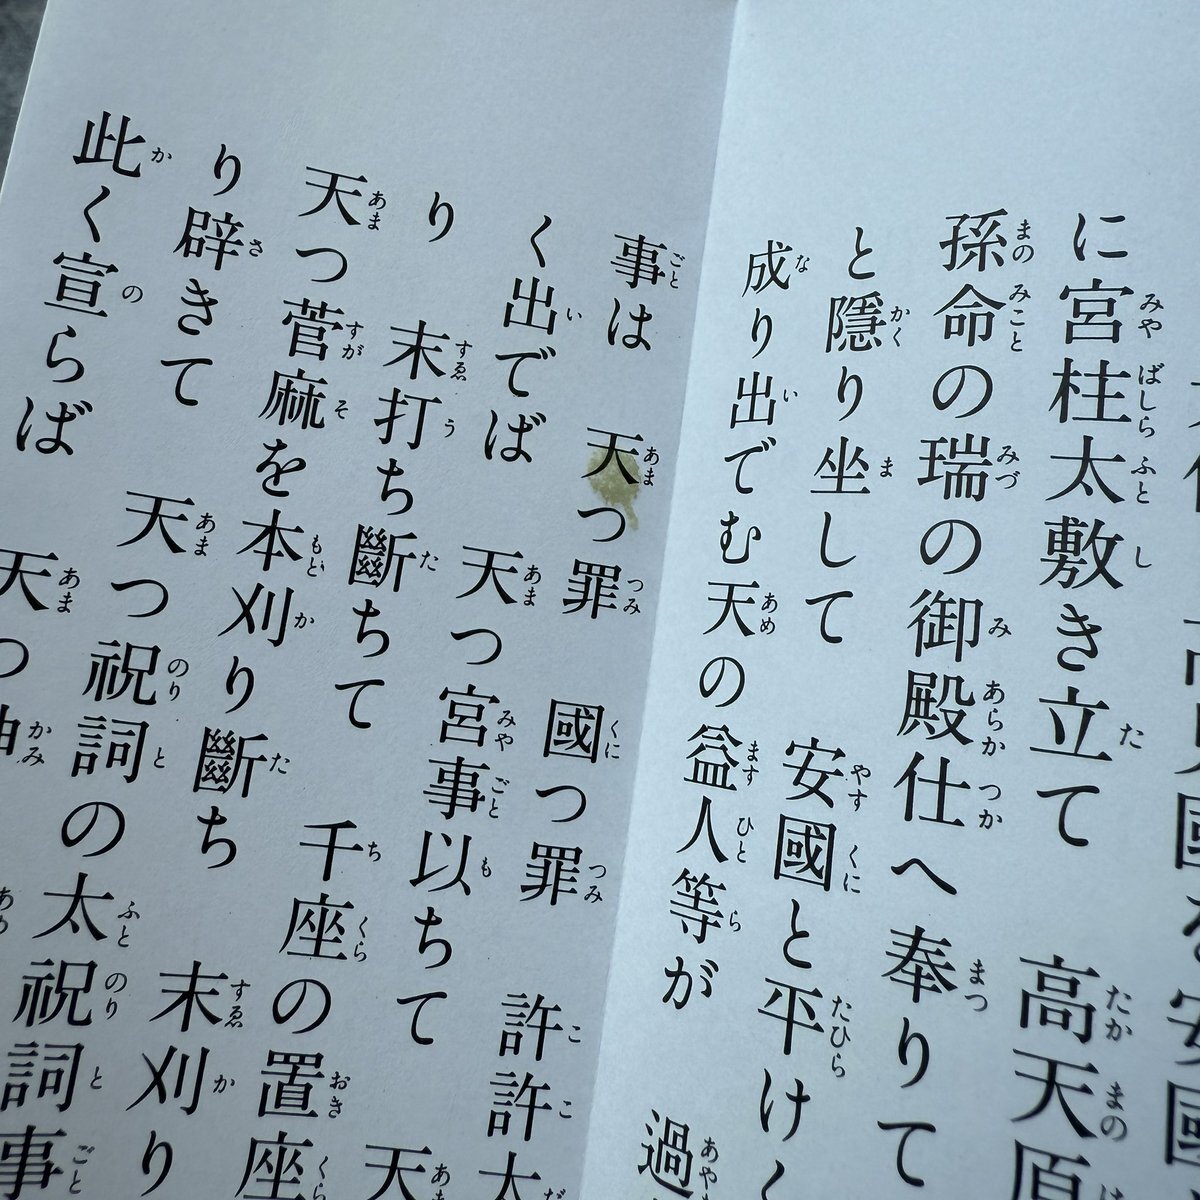 國を安國
に宮柱太敷き立て 高天原
孫命の瑞の御殿仕へ奉りて
と隱り坐して 安國と平けく
成り出でむ天の益人等が 過
事は 天つ罪 國つ罪 許許太
く出でば 天つ宮事以ちて 天
り 末打ち斷ちて 千座の置座
天つ菅麻を本刈り斷ち 末刈り
り辟きて 天つ祝詞の太祝詞事
此く宣らば 天つ神